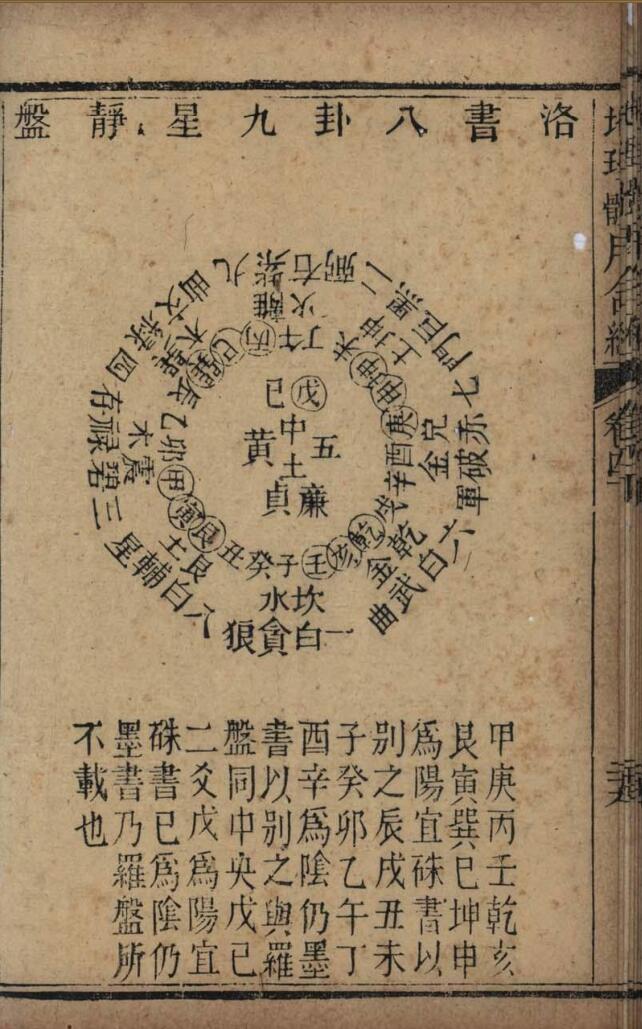 洛書八卦九星靜盤
九紫右弼
離火
丁午丙
二黑巨門
坤土
未坤申
七赤破軍
兌金
庚酉辛
六白武曲
乾金
戌乾亥
一白貪狼
坎水
壬子癸
八白輔星
艮土
丑艮寅
三碧祿存
震木
甲卯乙
四綠文曲
巽木
辰巽巳
戊己
中土
五黃
廉貞
甲庚丙壬乾亥
艮寅巽巳坤申
爲陽宜硃書以
別之辰戌丑未
子癸卯乙午丁
酉辛爲陰仍墨
書以別之與羅
盤同中央戊己
二爻戊爲陽宜
硃書已爲陰仍
墨書乃羅盤所
不載也
地理體用合編
卷四